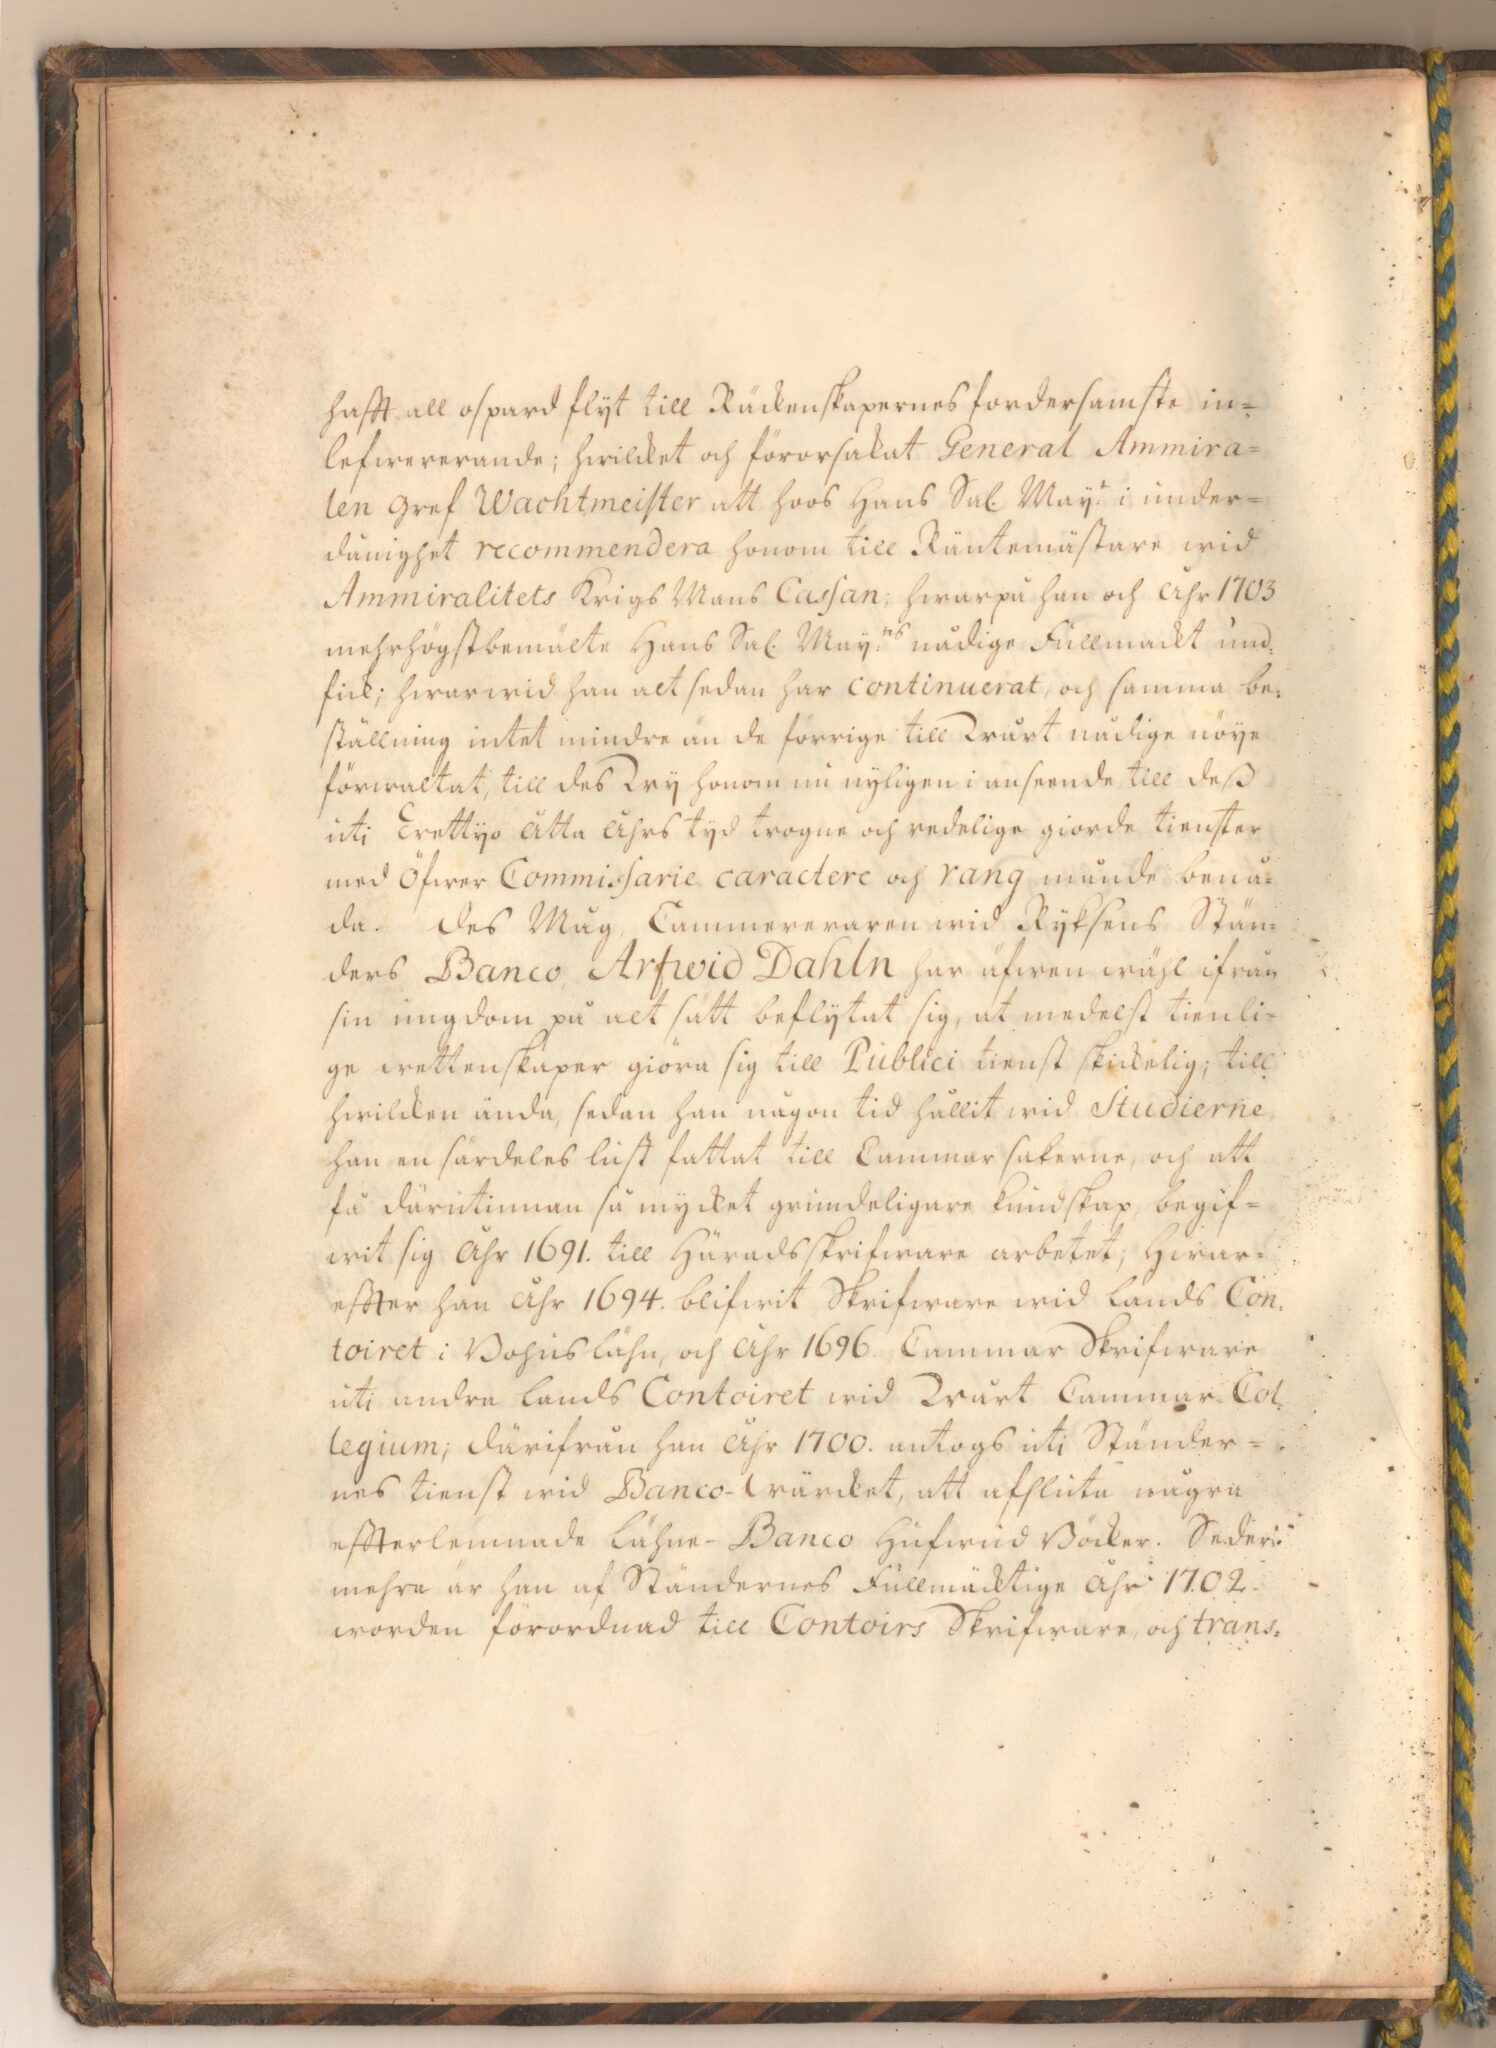 hafft all ospard flyt till Räckenskapernes fordersamste in=
lefwererande; hwilcket och förorsakat General Ammira=
len Gref Wachtmeister att hoos Hans Sal. May:t i under=
dånighet recommendera honom till Räntemästare wid
Ammiralitets Krigs Mans Cassan; hwarpå han och Åhr 1703
mehrhögstbemälte Hans Sal. May:ts nådige Fullmackt und=
fick; hwarwid han alt sedan har continuerat, och samma be=
ställning intet mindre än de förrige till Wårt nådige nöye
förwaltat, till des Wy honom nu nyligen i anseende till deß
uti Trettyo Åtta Åhrs tyd trogne och redelige giorde tienster
med Öfwer Commissarie caractere och rang munde benå=
da. Des Måg, Cammereraren wid Ryksens Stän=
ders Banco, Arfwid Dahln har äfwen wähl ifrån
sin ungdom på alt sätt beflytat sig, at medelst tienli=
ge wettenskaper giöra sig till Publici tienst skickelig; till
hwilcken ända, sedan han någon tid hållit wid Studierne
han en särdeles lust fattat till Cammar sakerne, och att
få därutinnan så mycket grundeligare kundskap, begif=
wit sig Åhr 1691. till Häradsskrifware arbetet; Hwar=
effter han Åhr 1694. blifwit Skrifware wid Lands Con=
toiret i Bohus Lähn, och Åhr 1696. Cammar Skrifware
uti andra Lands Contoiret wid Wårt Cammar-Col=
legium; därifrån han Åhr 1700. antogs uti Ständer=
nes tienst wid Banco-Wärcket, att afsluta några
effterlemnade Låhne-Banco Hufwud Böcker. Seder=
mehra är han af Ständernes Fullmäcktige Åhr 1702.
worden förordnad till Contoirs Skrifware, och trans=